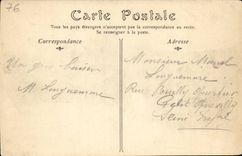 76
Carte Postale
Tous les pays étrangers n'acceptent pas la correspondance au recto.
Se renseigner à la poste
Correspondance
Adresse
Un gros baiser
M. Longuemare
Monsieur Marcel
Longuemare
Rue
Petit Quevilly
Seine Infre